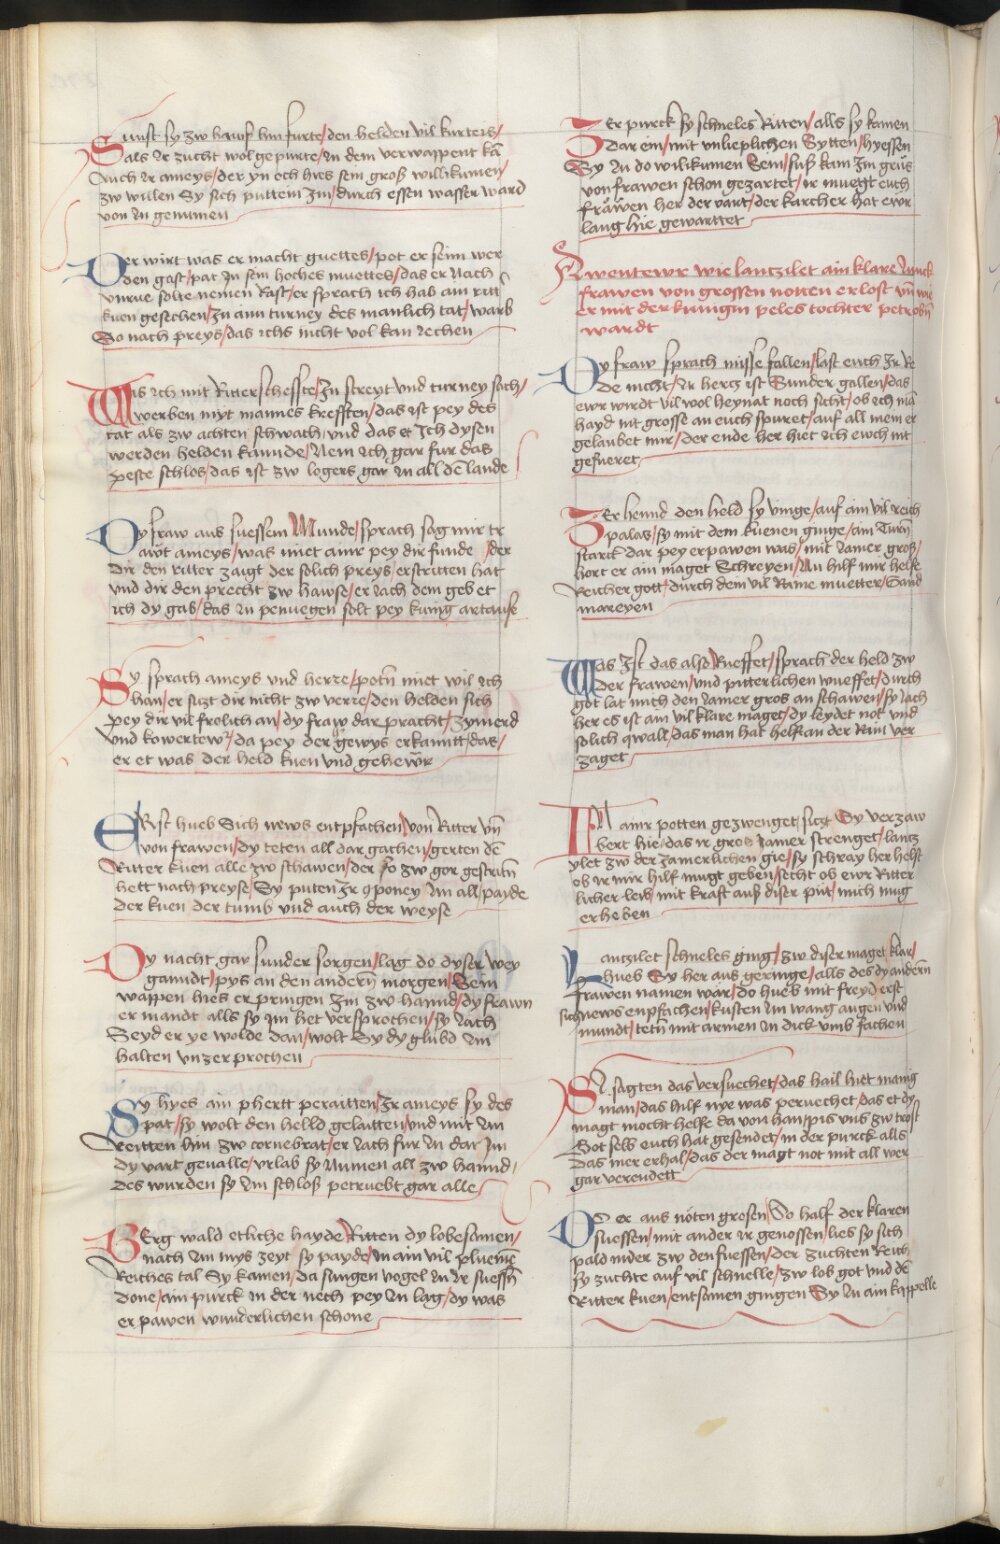 Sunst sy zw haws hin furte/den helden vil kurteis/
als ir zucht wol gepurte/In dem verwappent kā
Auch ir ameys/der yn ech hies sein groß willikumen/
zw willen Sy sich puttem Im/durch essen wasser ward
von In genumen
Der wirt was er macht guettes/pot er seinn wer
den gast/pat In sein hoches muettes/das er Nach
vnrue solte nemen Rast/er sprach ich hab ain ritt
kuen gesechen/Zu ainn turney des manlich tat/warb
So nach preys/das ichs nicht vol kan Iechen
Was ich mit Ritterscheffte/In streyt vnd turney sach/
werben nyt mannes krefften/das ist pey des
tat als zw achten schwach/vnd das et Ich dysen
werden helden kannde/Nem ich gar fur das
peste schlos/das ist zw logers gar in all dē lande
Dy fraw aus suessem Munde/sprach sag mir tr
aut ameys/was miet ainr pey dir funde/der
dir den ritter zaigt der solich preys/erstritten hat
vnd dir den precht zw hawse/er Iach dem geb et
ich dy gab/das In penuegen solt pey kunig artause
Sy sprach ameys vnd herze/potn miet wil ich
han/er sizt dir nicht zw verre/den helden sich
pey dir vil frolich an/dy fraw dar pracht/zymerd
vnd kowertewr/da pey der gewys erkannt/das/
er et was der held kuen vnd gehewr
Erst hueb Sich news entpfachen/von Ritter vñ
von frawen/dy teten all dar gachen/gerten dē
Ritter kuen alle zw schawen/der so zw gor gestratn
hett nach preyse/Sy puten Ir oponey Im all/payde
der kuen der tumb vnd auch der weyse
Dy nacht gar sunder sorgen/lag do dyser wey
gamdt/pys an den andern morgen/Sein
wappen hies er pringen Im zw hannd/dy frawn
er mandt alls sy im het versprochen/sy Iach
Seyd er ye wolde dan/wolt Sy dy glubd Im
halten vnzerprochen
Sy hyes ain phertt peraitten/Ir ameys sy des
pat/sy wolt den helld gelaitten/vnd mit Im
Reitten hin zw cornebrat/er Iach fur In dar Im
dy vart geualle/vrlab sy Numen all zw hannd/
des wurden sy Im schloß petruebt gar alle
Berg wald etliche hayde/Ritten dy lobesamen/
nach Im mys zeyt sy payde/In ain vil pluemē
Reiches tal Sy kamen/da sungen vogel in ir suessn
done/ain purck in der nech pey In lag/dy was
erpawen wunderlichen schone
Zer purck sy schneles Ritten/alls sy kamen
dar ein/mit vnlieplichen Sytten/hyessen
Sy In do wilikumen Sein/suß kam Im grus
von frawen schon gezartet/ir muegt euch
frawen her der vart/der karcher hat ewr
lang hie gewarttet
Awentewr wie lantzilet ain klare Iunck
frawen von grossen notten erlost vñ wie
er mit der kunigin peles tochter petrobñ
wardt
Dy fraw sprach misse fallen/last euch Ir re
de nicht/Ir hercz ist Sunder gallen/das
ewr wirdt vil wol heynat noch sicht/ob ich ma
hayd nit grosse an euch spuret/auf all mein er
gelaubet mir/der ende her hiet ich ewch nit
gefueret
Zer hennd den held sy vinge/auf ain vil reich
palas/sy mit dem kuenen ginge/ain turn
starck dar pey erpawen was/mit Iamer groß/
hort er ain maget Schreyen/Nu hilf mir helfe
Reicher gott/durch dein vil Raine muetter/Sand
mareyen
Was Ist das also Rueffet/sprach der held zw
der frawen/vnd pitterlichen wueffet/durch
got lat mich den Iamer gros an schawen/sy Iach
her es ist ain vil klare maget/dy leydet not vnd
solich qwall/das man hat helf an der kuni ver
zaget
In ainr potten gezwenget/sizt Sy verzaw
bert hie/das ir gros Iamer strenget/lantz
ylet zw der Iamerlichen gie/sy schray her helft
ob ir mir hilf mugt geben/secht ob ewr Ritter
licher leib/mit kraft auß diser put/mich mug
erheben
Lantzilet schneles ging/zw diser maget klar/
hueb Sy her aus geringe/alls des dy andern
frawen namen war/do hueb mit freyd erst
sich news enpfachen/kusten Im wang augen vnd
mundt/tetn mit armen in dick vmb fachen
Sy sagten das versuechet/das hail hiet manig
man/das hilf nye was peruechet/das et dy
magt mocht helfe da von han/pis vns zw trost
Got selb euch hat gesendet/in der purck alls
das mer erhal/das der magt not mit all wer
gar verendett
Do er aus noten grosen/So half der klaren
suessen/mit ander ir genossen/lies sy sich
pald nider zw den fuessen/der zuchten Reich
sy zuchte auf vil schnelle/zw lob got vnd dē
Ritter kuen/entsamen gingen Sy In ain kappelle